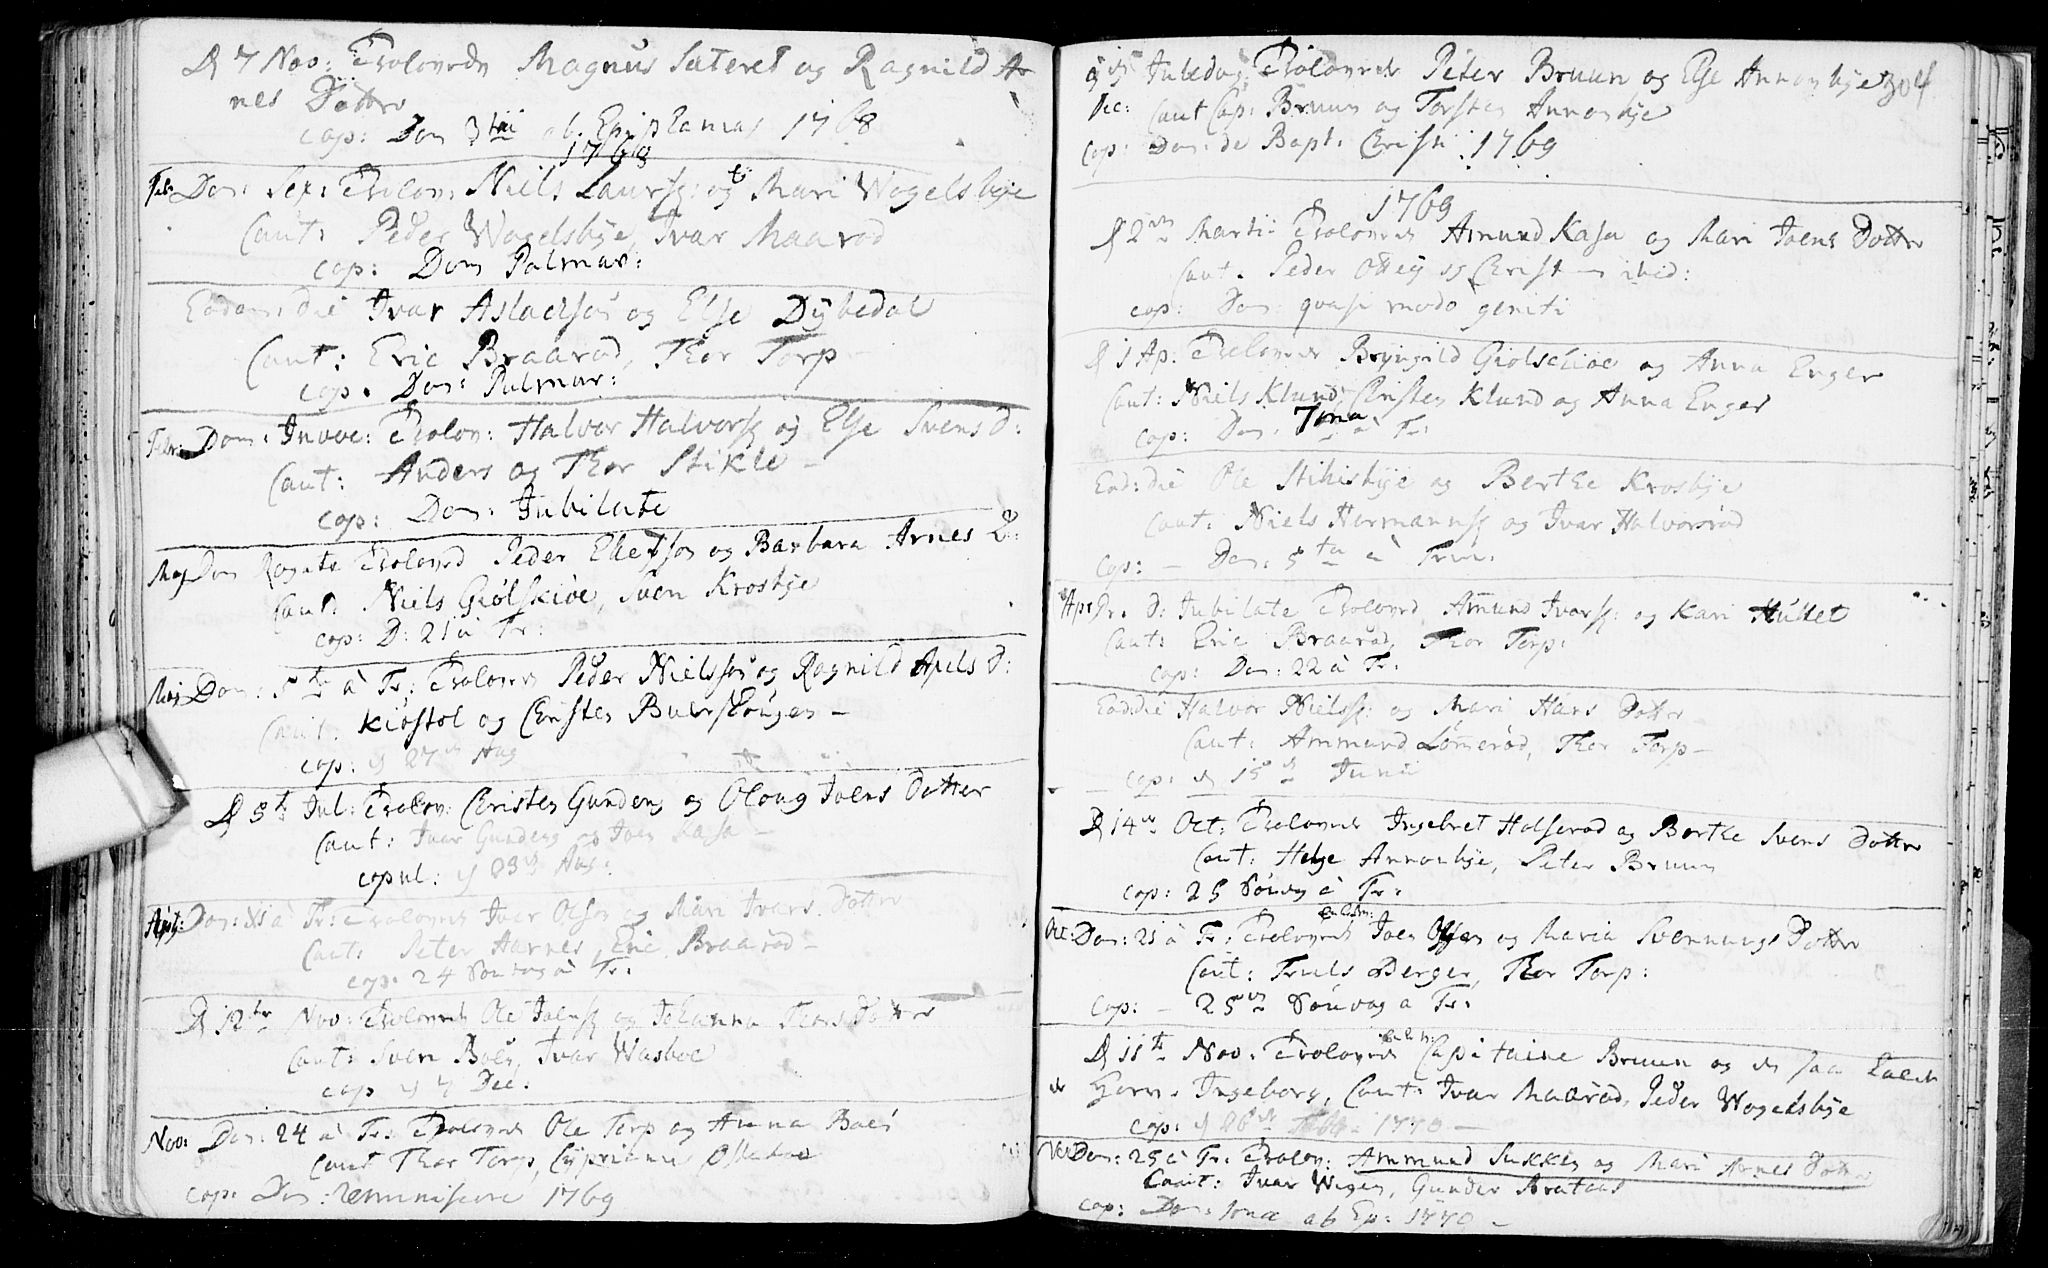 D 7 Nov: Trolovede Magnus Sateret og Ragnild Ar
nes Dotter
cop: Dom 3tia ab. Epiphanias 1768
1768
Febr Dom: Sex: Trolov: Niels Laursß: og Mari Wogelsbye
Caut: Peder Wogelsbye, Ivar Maarod
cop: Dom Palmar:
Eodem die Ivar Aslachsøn og Else Dybedal
Caut: Eric Braarod, Thor Torp
cop. Dom: Palmar:
Febr: Dom: Invoc: Trolov: Halvor Halvorsß og Else Svens D:
Caut: Anders og Thor Stikle –
cop: Dom: Jubilate
Maj Dom Rogate Trolovd Peder Ellefsøn og Barbara Arnes D:
Caut: Niels Giølskiøe, Sven Krosbye
cop: D: 21 a Tr:
Dom: 5ta a Tr: Trolovd Peder Nielssøn og Ragnild Apels D:
Caut: Kiøstol og Christen Buerskougen –
cop: d 27de Aug
D 5te Jul: Trolov: Christen Gundens og Oloug Joens Dotter
Caut: Ivar Gundens og Joen Kasa –
copul: d 23de Aug:
Dom: a Tr: Trolovd Iver Olsøn og Mari Ivers Dotter
Caut: Peter Aarnes, Eric Braarod –
cop: 24 Søndag a Tr:
D 12te Nov: Trolovede Ole Joensß og Johanna Thors Dotter
Caut: Sven Boen, Ivar Wasboe
cop d 7 Dec:
Nov: Dom: 24 a Tr: Trolovd Ole Torp og Anna Boei
Caut Thor Torp, Cyprianus
cop: Dom: reminiscere 1769
304
Juledag: Trolovede Peter Bruun og Else Annonbye
Dec: Caut Cap: Bruun og Torsten Annonbye
cop: Dom: de Bapt: Christi 1769
1769
D 2den Marti Trolovede Amund Kasa og Mari Joens Dotter
Caut. Peder og Christen ibid:
cop: Dom: quasi modo geniti
D 1 Ap: Trolovede Bryngild Giølschioe og Anna Enger
Caut: Niels Klund, Christen Klund og Anna Enger
cop: Dom: 7ma a Tr:
Eod: die Ole Stikisbye og Berthe Krosbye
Caut: Niels Hermansß og Ivar Halvorsrød
cop: – Dom: 5ta a Trin:
Apr D: Jubilate Trolovd Amund Ivarsß: og Kari Hullet
Caut: Eric Braarod, Thor Torp:
cop: Dom: 22 a Tr:
Eod: die Halvor Nielsß: og Mari Hans Dotter
Caut: Ammund Lømerød, Thor Torp –
cop: d 15de Junii
D 14de Oct: Trolovede Ingebret Holserød og Berthe Svens Dotter
Caut: Helge Annonbye, Peter Bruun
cop: 25 Søndag a Tr:
Oct: Dom: 21 a Tr: Trolovede Joen Olsen og Maria Svennungs Dotter
Caut: Truls Berger, Thor Torp:
cop: – 25de Søndag a Tr:
D 11te Nov: Trolovede Capitaine Bruun og
Ingeborg, Caut: Ivar Maarod, Peder Wogelsbye
cop: d 26de 1770 –
Dom: 25 a Tr: Trolov: Ammund Sukken og Mari Arnes Dotter
Caut: Ivar Wegen, Gunder Brataas
cop: Dom: 1ma ab Ep: 1770 –